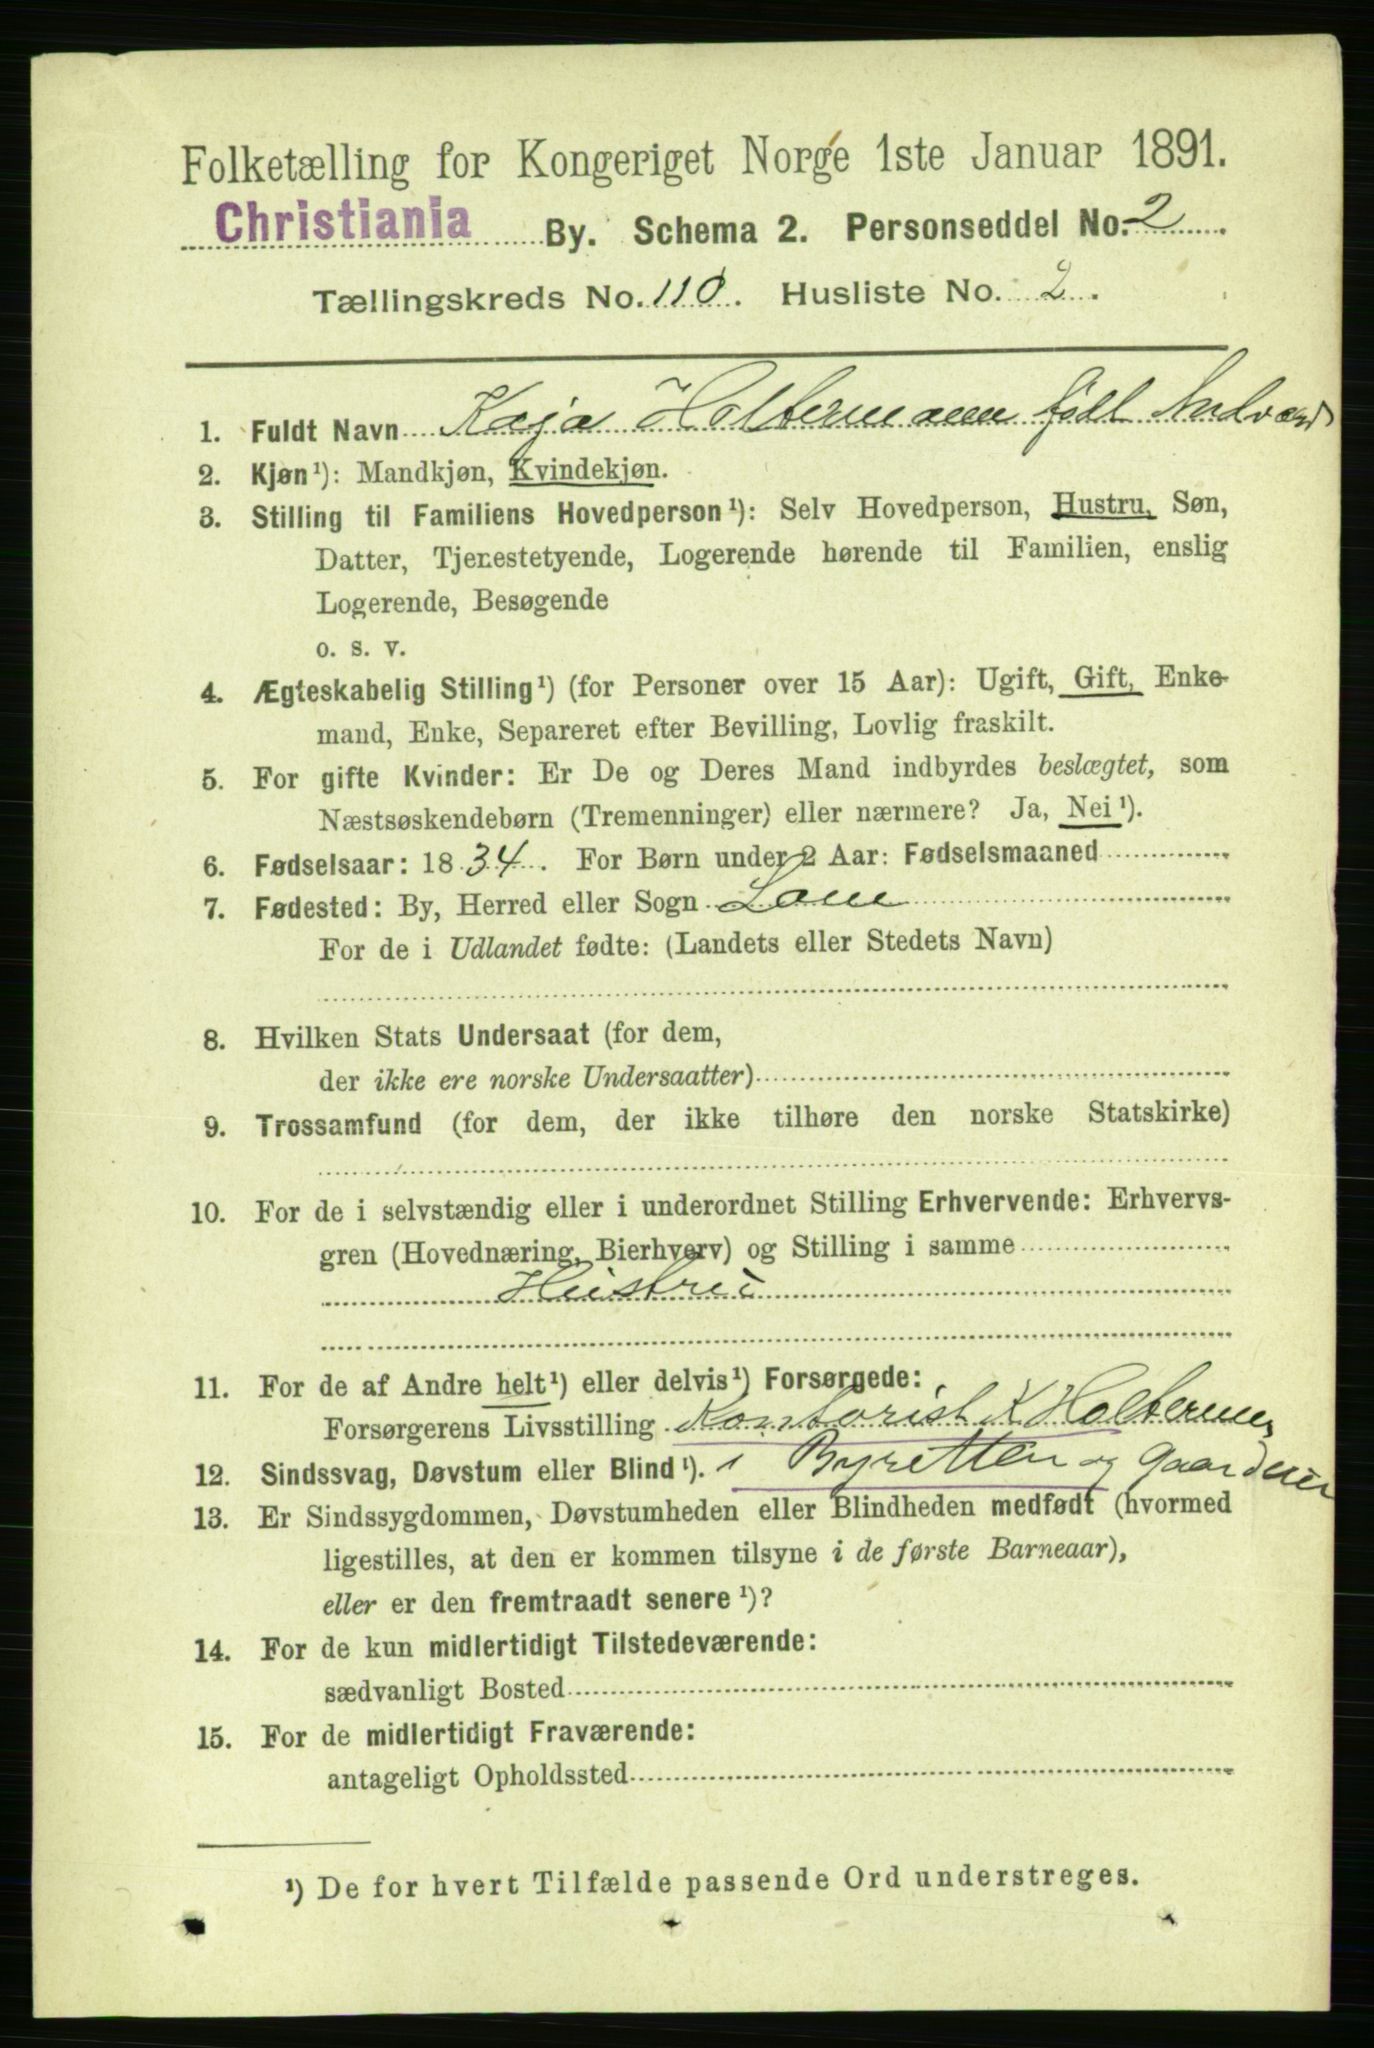 Folketælling for Kongeriget Norge 1ste Januar 1891.
Christiania By. Schema 2. Personseddel No. 2.
Tællingskreds No. 110. Husliste No. 2.
1. Fuldt Navn Kaja Holtermann født
2. Kjøn¹): Mandkjøn, Kvindekjøn.
3. Stilling til Familiens Hovedperson¹): Selv Hovedperson, Hustru, Søn,
Datter, Tjenestetyende, Logerende hørende til Familien, enslig
Logerende, Besøgende
o. s. v.
4. Ægteskabelig Stilling¹) (for Personer over 15 Aar): Ugift, Gift, Enke-
mand, Enke, Separeret efter Bevilling, Lovlig fraskilt.
5. For gifte Kvinder: Er De og Deres Mand indbyrdes beslægtet, som
Næstsøskendebørn (Tremenninger) eller nærmere? Ja, Nei¹).
6. Fødselsaar: 1834. For Børn under 2 Aar: Fødselsmaaned
7. Fødested: By, Herred eller Sogn Lom
For de i Udlandet fødte: (Landets eller Stedets Navn)
8. Hvilken Stats Undersaat (for dem,
der ikke ere norske Undersaatter)
9. Trossamfund (for dem, der ikke tilhøre den norske Statskirke)
10. For de i selvstændig eller i underordnet Stilling Erhvervende: Erhvervs-
gren (Hovednæring, Bierhverv) og Stilling i samme
Hustru
11. For de af Andre helt¹) eller delvis¹) Forsørgede:
Forsørgerens Livsstilling Kontorist K Holterman
12. Sindssvag, Døvstum eller Blind¹). i Byretten og Gaardeier
13. Er Sindssygdommen, Døvstumheden eller Blindheden medfødt (hvormed
ligestilles, at den er kommen tilsyne i de første Barneaar),
eller er den fremtraadt senere¹)?
14. For de kun midlertidigt Tilstedeværende:
sædvanligt Bosted
15. For de midlertidigt Fraværende:
antageligt Opholdssted
¹) De for hvert Tilfælde passende Ord understreges.